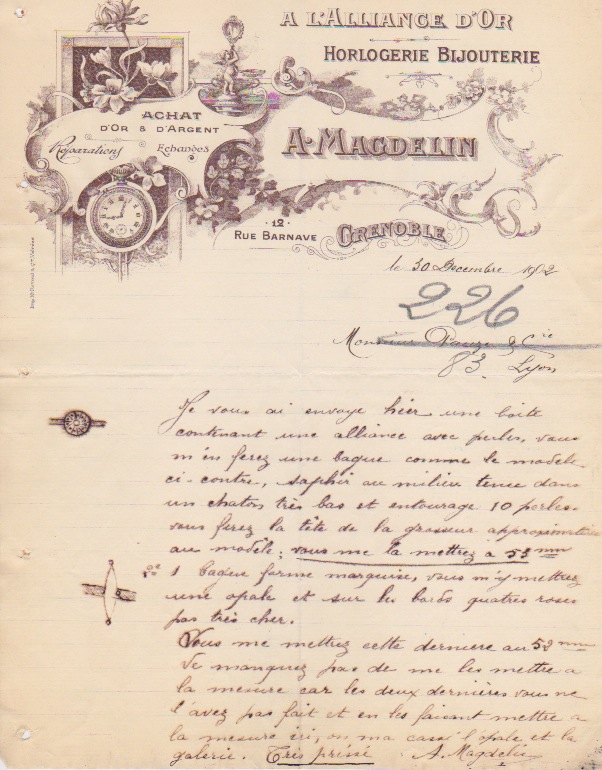 A L'ALLIANCE D'OR
HORLOGERIE BIJOUTERIE
ACHAT
D'OR & D'ARGENT
Réparations Echanges
A. MAGDELIN
12
RUE BARNAVE
GRENOBLE
le 30 Decembre 1902
226
Monsieur & Cie
83 Lyon
Je vous ai envoye hier une boite
contenant une alliance avec perles, vous
m'en ferez une bague comme le modele
ci-contre, saphir au milieu tenue dans
un chaton très bas et entourage 10 perles.
vous ferez la tête de la grosseur approximative
au modèle; vous me la mettrez à 53 mm
1 bague forme marquise, vous m'y mettrez
une opale et sur les bords quatres roses
pas très cher.
Vous me mettrez cette derniere au 52 mm
Ne manquez pas de me les mettre a
la mesure car les deux dernières vous ne
l'avez pas fait et en les faisant mettre a
la mesure ici, on m'a cassé l'opale et la
galerie. Très pressé A. Magdelin